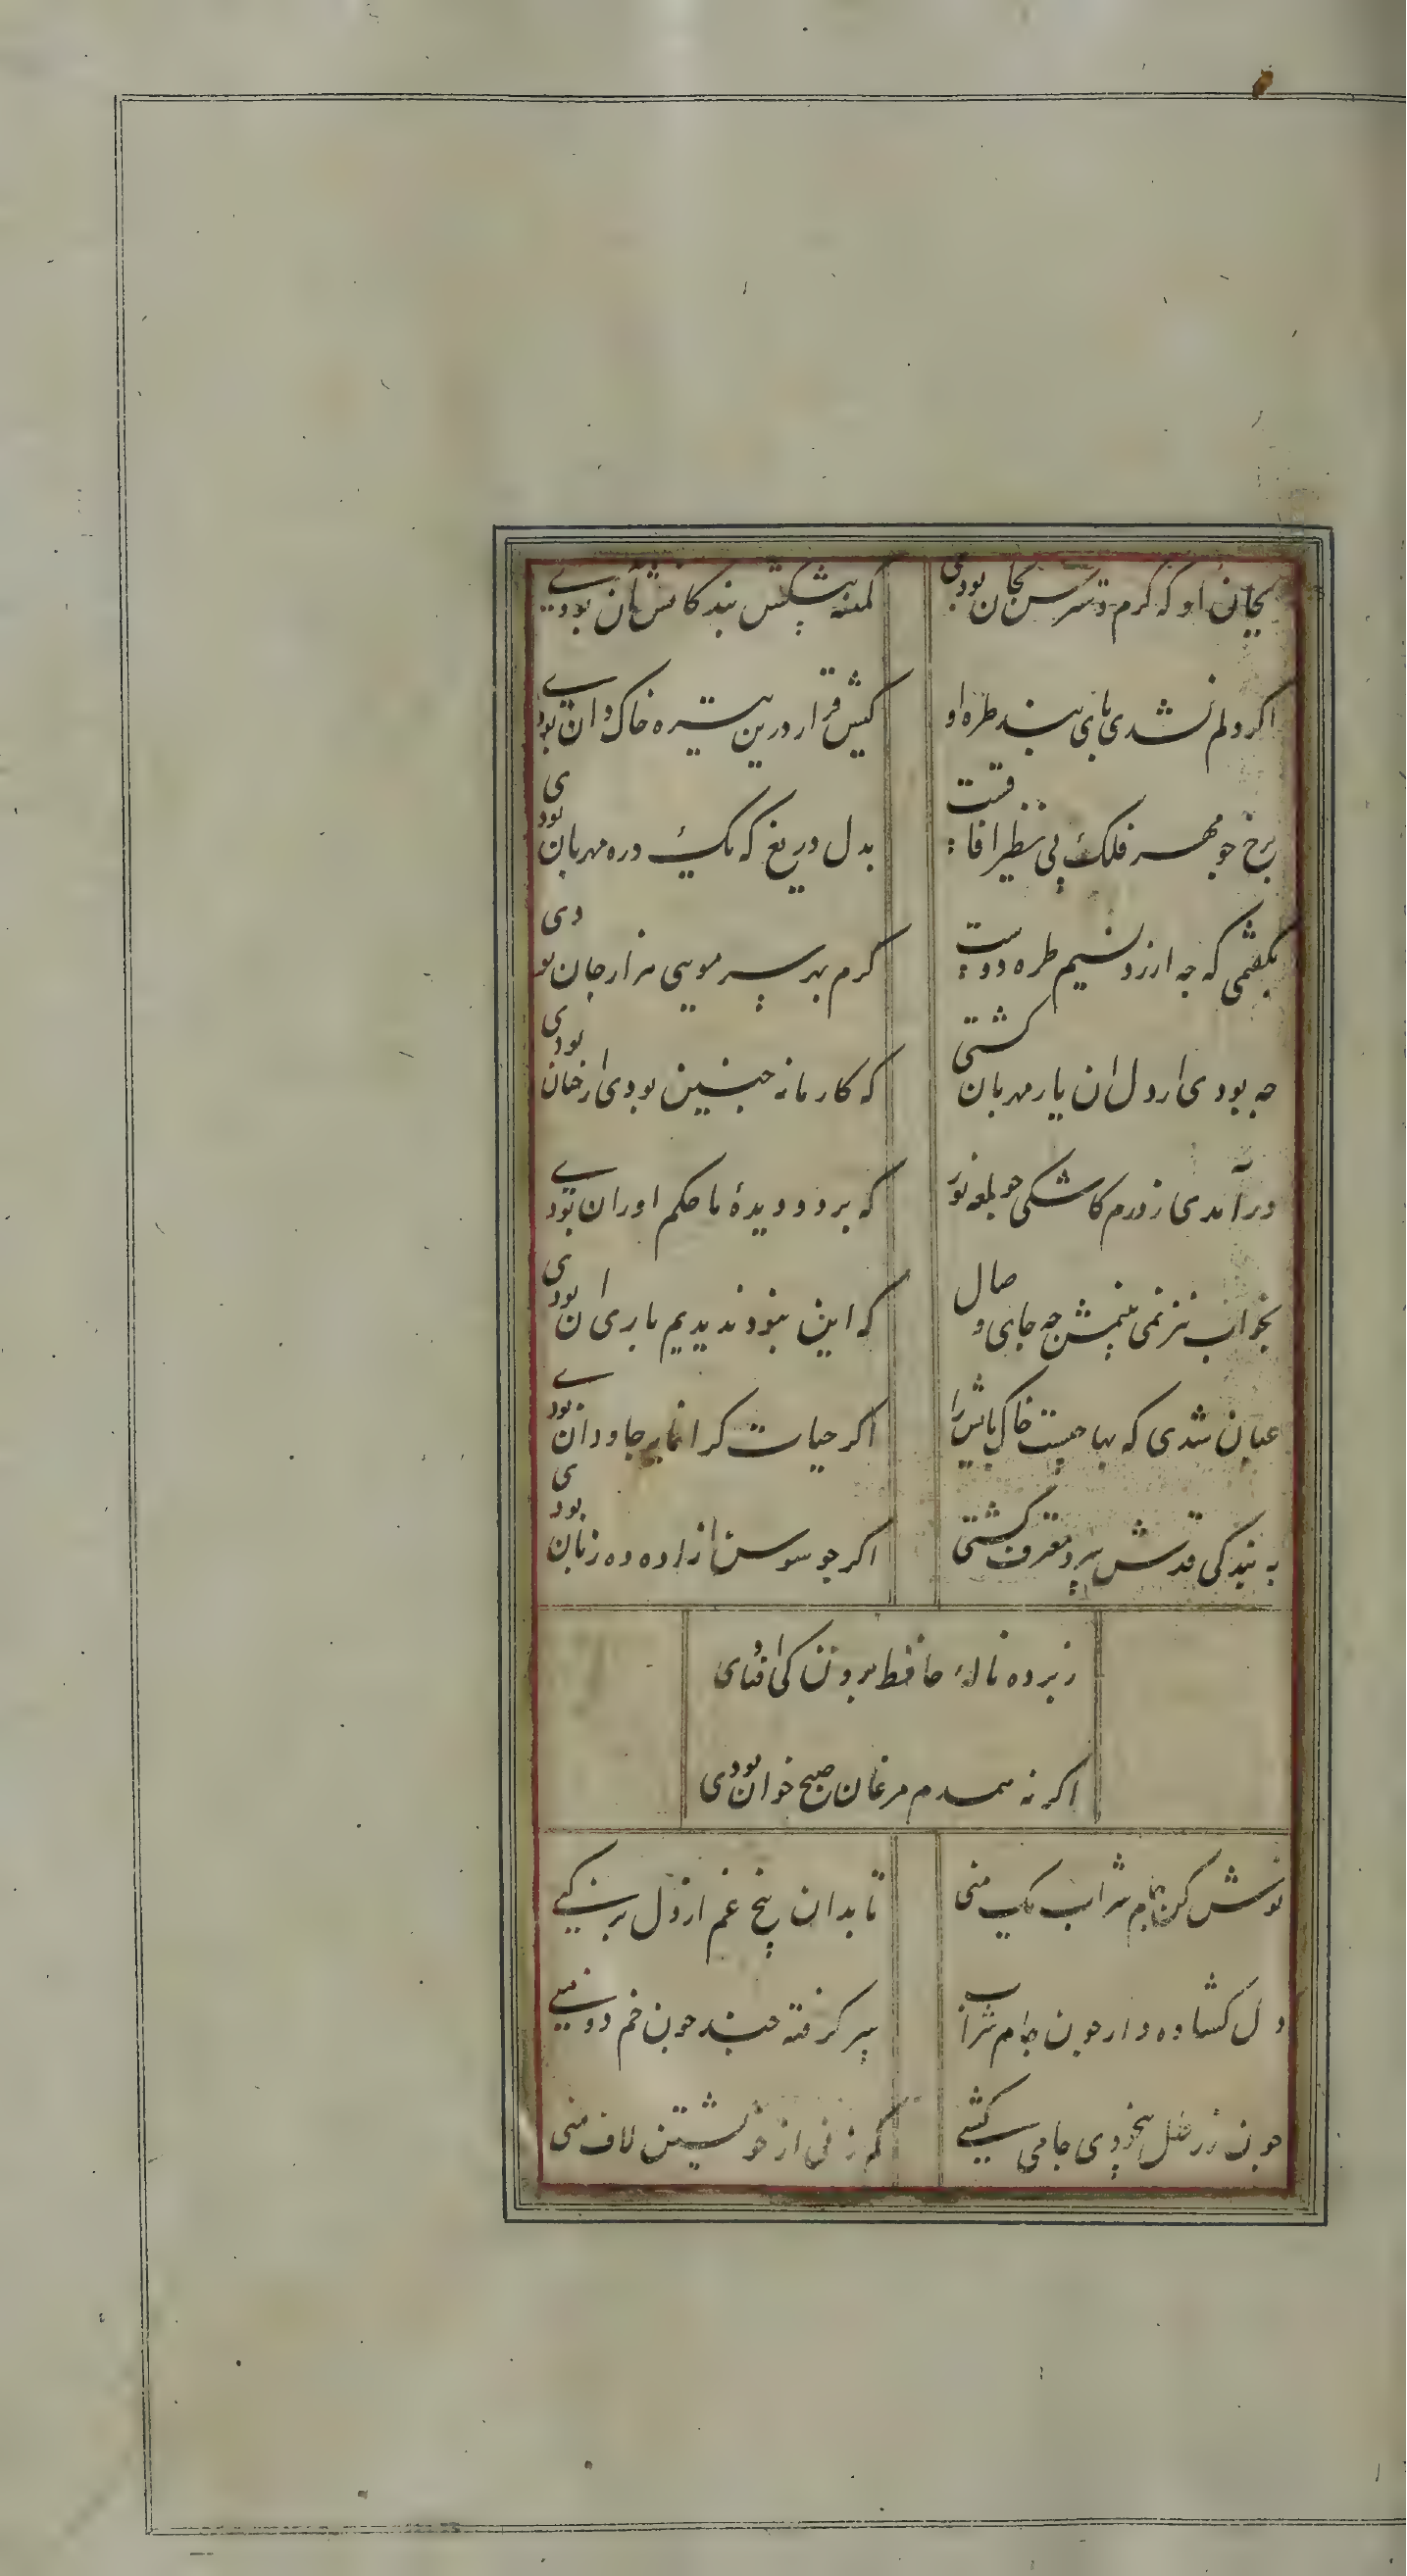 بجان او که کرم دسترس بجان بودی
کمینه پیشکش بندکانش آن بودی
اکر دلم نشدی پای بند طره او
کیش قرار درین تیره خاک دان بودی
برخ جو مهر فلک بی نظیر افاقست
بدل دریغ که یک ذره مهربان بودی
بکفتمی که جه ارزد نسیم طره دوست
کرم بهر سر مویی هزار جان بودی
جه بودی ار دل ان یار مهربان کشتی
که کار ما نه جنین بودی ار جنان بودی
درآمدی ز درم کاشکی جو لمعه نور
که بر دو دیدهٔ ما حکم او روان بودی
بخواب نیز نمی بینمش جه جای وصال
که این نبود ندیدیم باری ان بودی
عیان شدی که بها جیست خاک پایش را
اکر حیات کرانمایه جاودان بودی
به بندکی قدش سرو معترف کشتی
اکر جو سوسن ازاده ده زبان بودی
ز پرده نالهٔ حافظ برون کی افتادی
اکر نه همدم مرغان صبح خوان بودی
نوش کن جام شراب یک منی
تا بدان بیخ غم از دل برکنی
دل کشاده دار جون جام شراب
سر کرفته جند جون خم دنی
جون ز خم بیخودی جامی کشی
کم زنی از خویشتن لاف منی